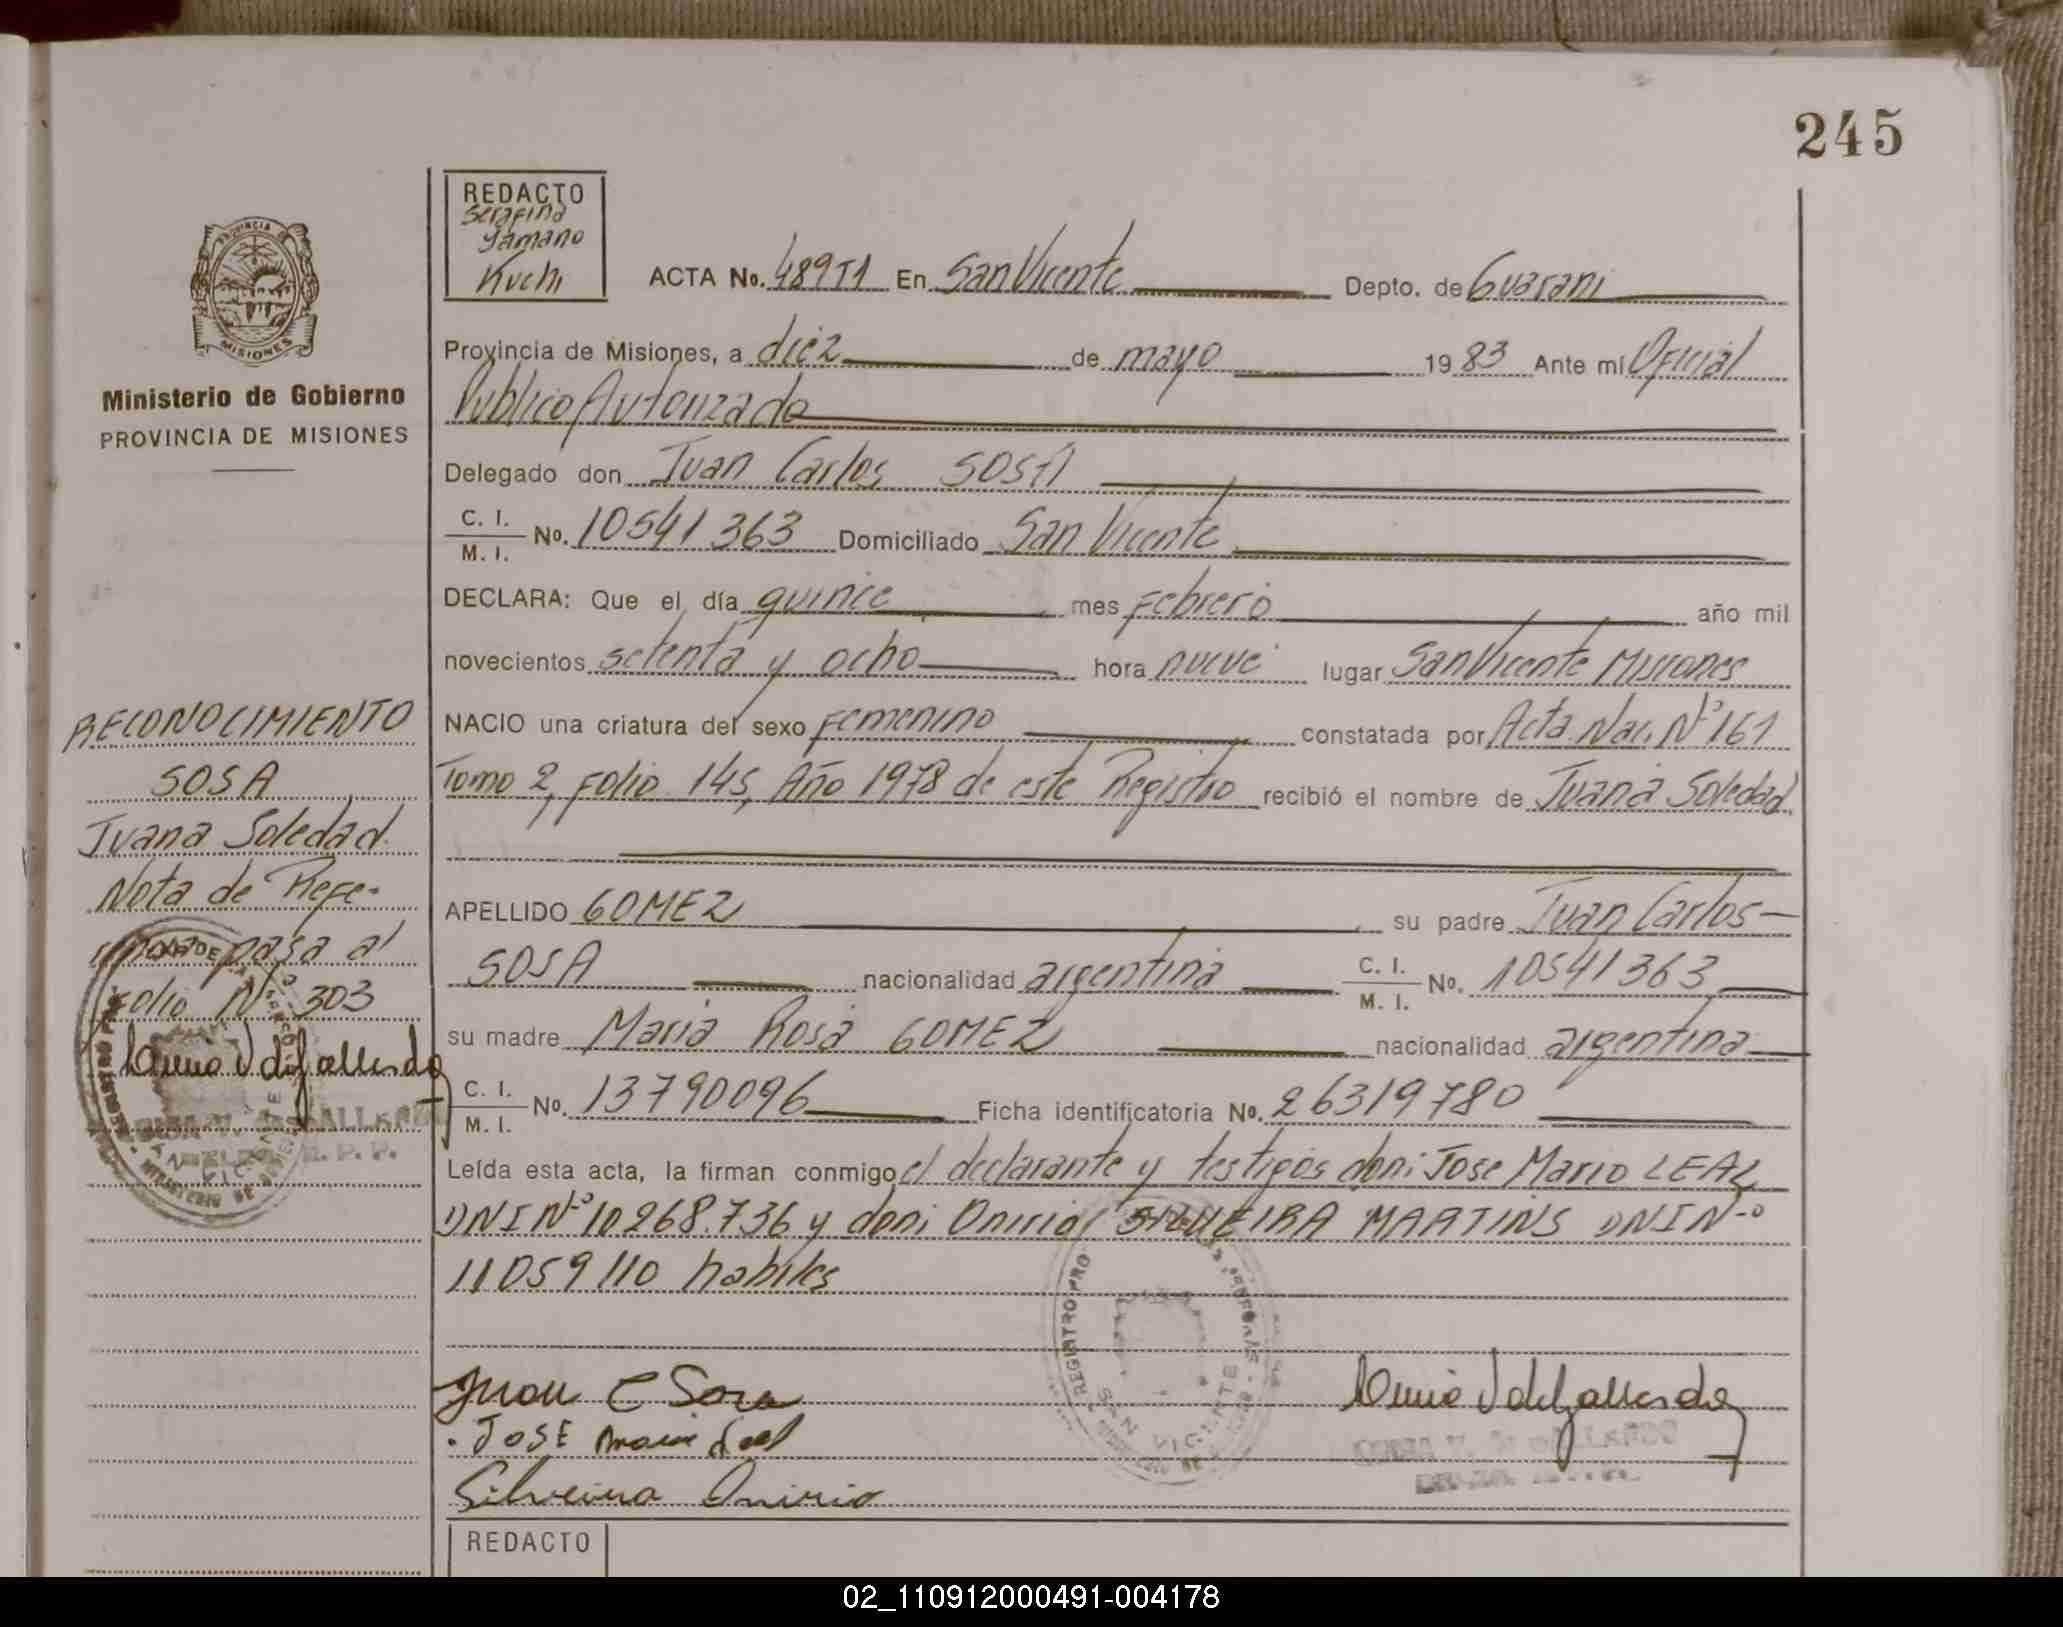 245
REDACTO
Serafina
Yamano
Kuchi
ACTA No. 489T1 En San Vicente Depto. de Guarani
Provincia de Misiones, a diez de mayo 1983 Ante mí Oficial
Publico Autorizado
Delegado don Juan Carlos SOSA
C. I.
M. I. No. 10541363 Domiciliado San Vicente
DECLARA: Que el día quince mes Febrero año mil
novecientos setenta y ocho hora nueve lugar San Vicente Misiones
NACIO una criatura del sexo Femenino constatada por Acta Nac. Nº 161
Tomo 2, Folio 145, Año 1978 de este Registro recibió el nombre de Juana Soledad
APELLIDO GOMEZ su padre Juan Carlos
SOSA nacionalidad argentina C. I.
M. I. No. 10541363
su madre Maria Rosa GOMEZ nacionalidad argentina
C. I.
M. I. No. 13790096 Ficha identificatoria No. 26319780
Leída esta acta, la firman conmigo el declarante y testigos don: Jose Mario LEAL
DNI Nº 10.268.736 y don: Onirio MARTINS DNI Nº
11059110 habiles
Juan C Sosa
JOSE
Silveira Onirio
REGISTRO PRO
SAN VICENTE
REDACTO
PROVINCIA DE
MISIONES
Ministerio de Gobierno
PROVINCIA DE MISIONES
RECONOCIMIENTO
SOSA
Juana Soledad
Nota de Refe-
pasa al
Folio Nº 303
02_110912000491-004178